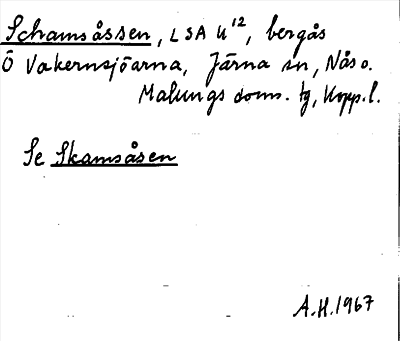 Schamsåssen, LSA U¹², bergås
Ö Vakernsjöarna, Järna sn, Nås o.
Malungs doms. tg, Kopp. l.
Se Skamsåsen
A.H. 1967